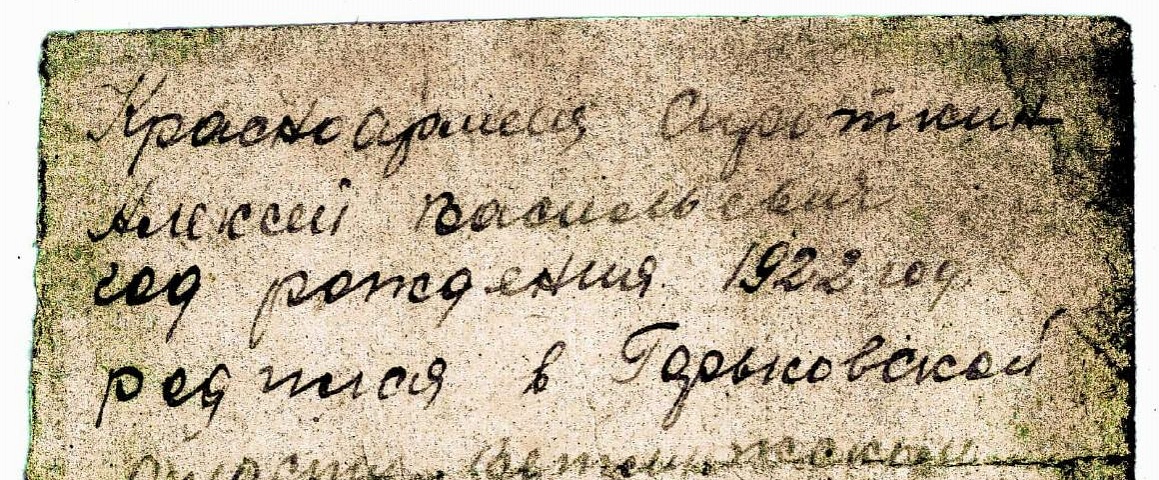 Красноармеец Сироткин
Алексей Васильевич
год рождения 1922 год
родился в Горьковской
области